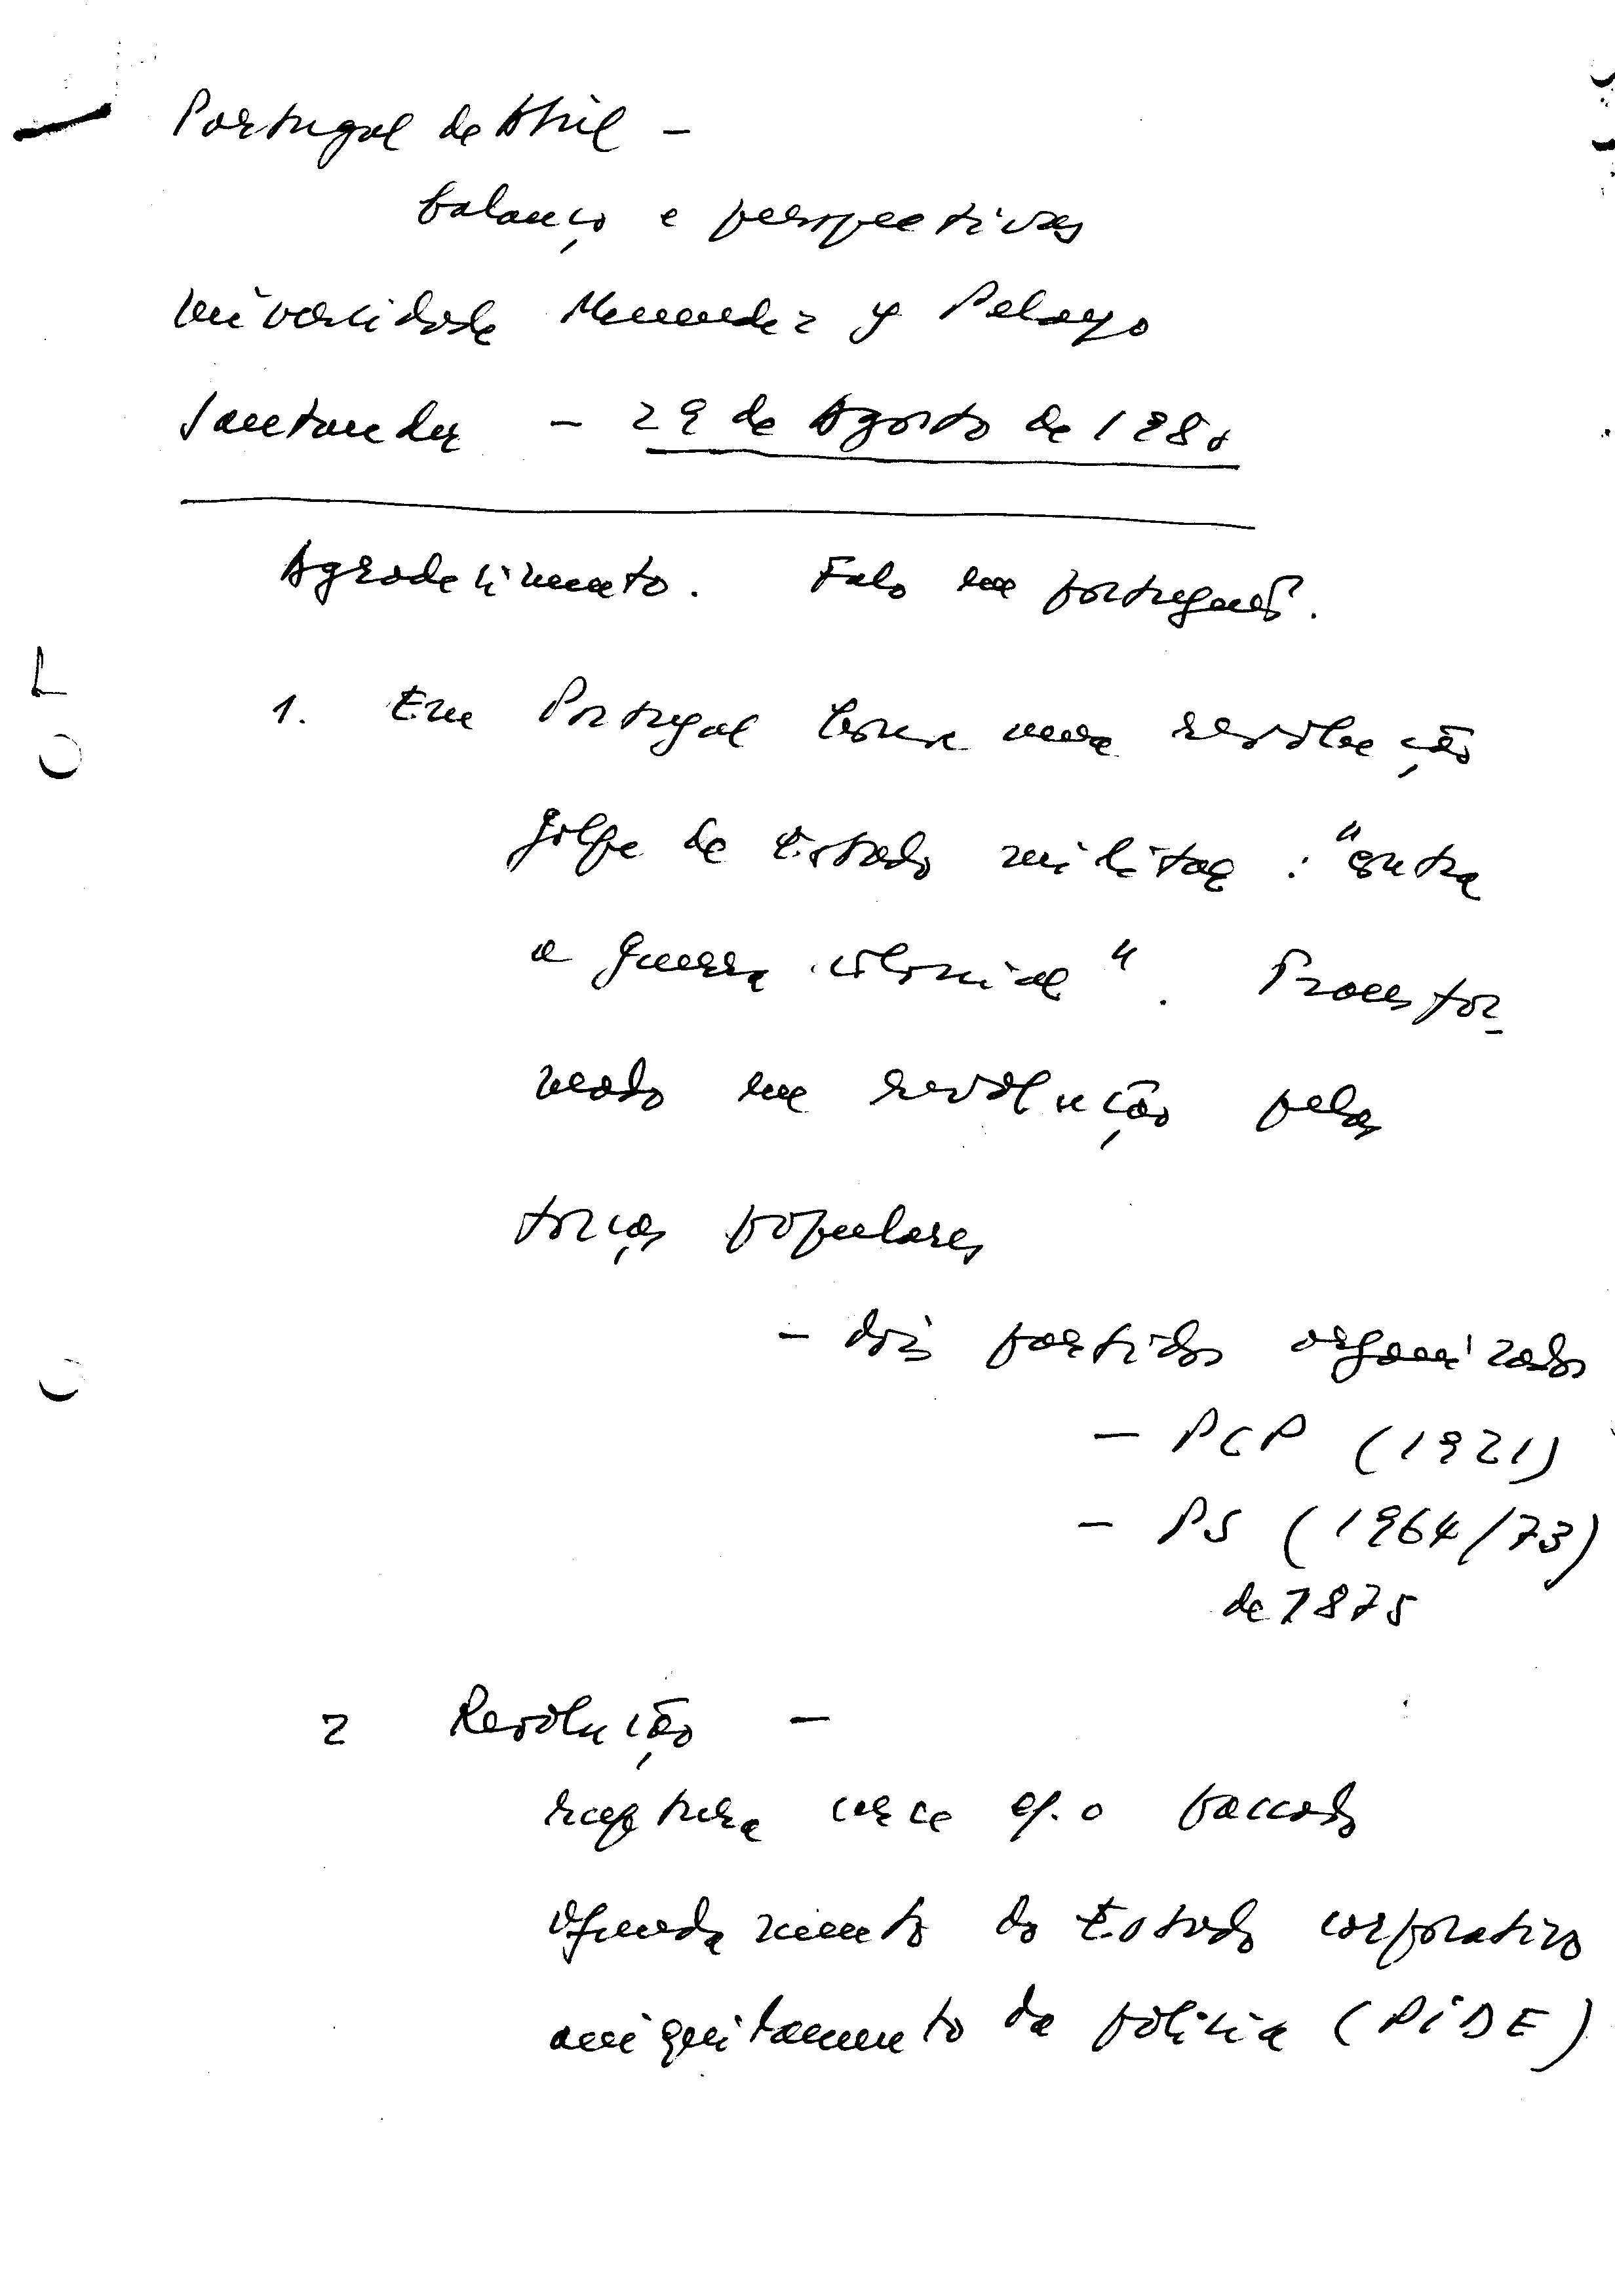 Portugal de Abril –
balanço e perspectivas
Universidade Menendez y Pelayo
Santander – 29 de Agosto de 1980
Agradecimento. Falo em português.
1. Em Portugal houve uma revolução
golpe de Estado militar : "contra
a guerra colonial". Transfor-
mado em revolução pelas
forças populares
– dois partidos organizados
– PCP (1921)
– PS (1964/73)
de 1875
2 Revolução –
ruptura com o passado
afundamento do Estado corporativo
aniquilamento da polícia (PIDE)